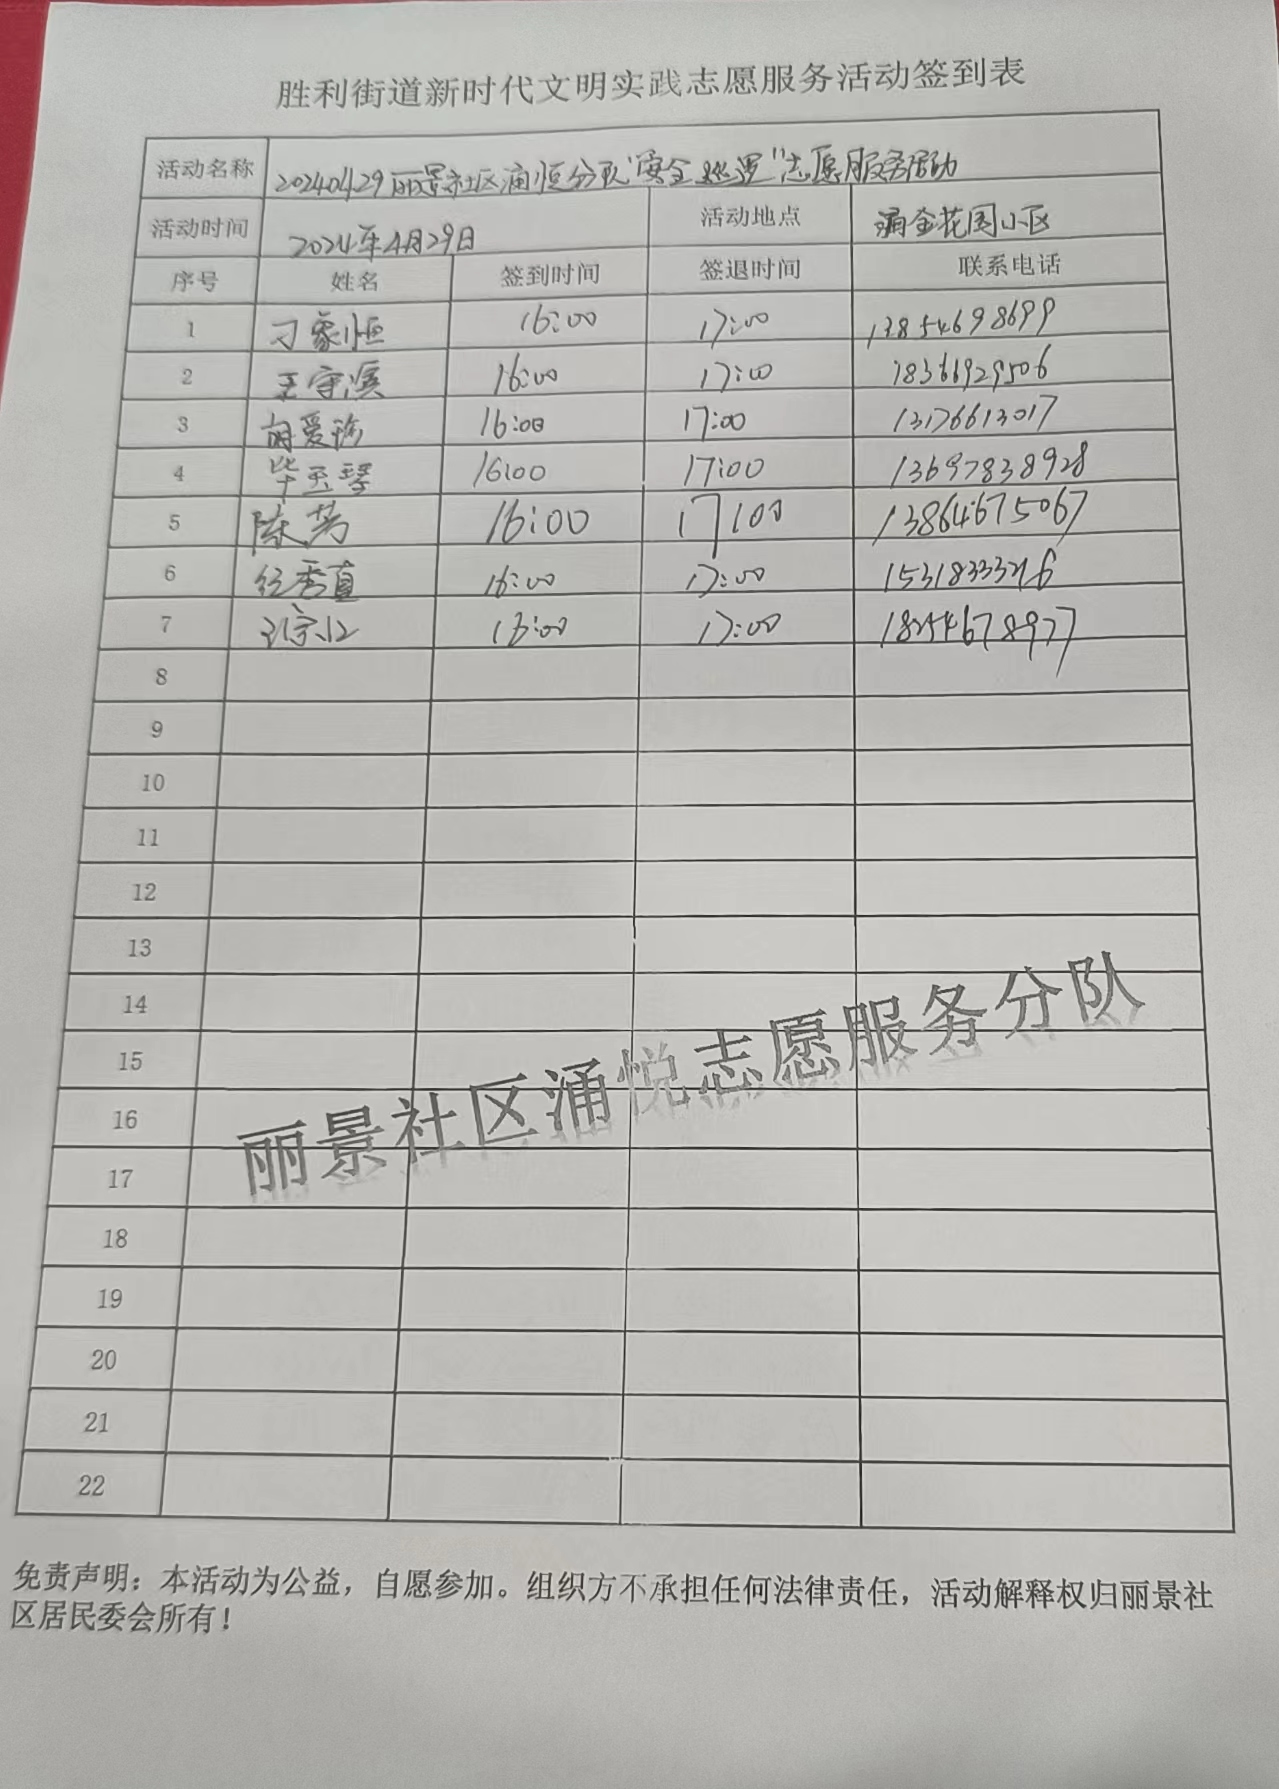 胜利街道新时代文明实践志愿服务活动签到表
活动名称 20240429丽景社区涌恒分队"安全巡逻"志愿服务活动
活动时间 2024年4月29日 活动地点 涌金花园小区
序号 姓名 签到时间 签退时间 联系电话
1 刁象恒 16:00 17:00 13854698699
2 王守溪 16:00 17:00 18366929506
3 胡爱珍 16:00 17:00 13176613017
4 毕玉琴 16:00 17:00 13697838928
5 陈芳 16:00 17:00 13864675067
6 秀直 16:00 17:00 15318333216
7 16:00 17:00 18254678977
8
9
10
11
12
13
14
15
16
17
18
19
20
21
22
丽景社区涌悦志愿服务分队
免责声明：本活动为公益，自愿参加。组织方不承担任何法律责任，活动解释权归丽景社
区居民委会所有！